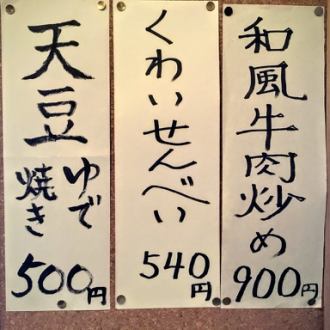 和風牛肉炒め
900円
くわいせんべい
540円
天豆
ゆで
焼き
500円